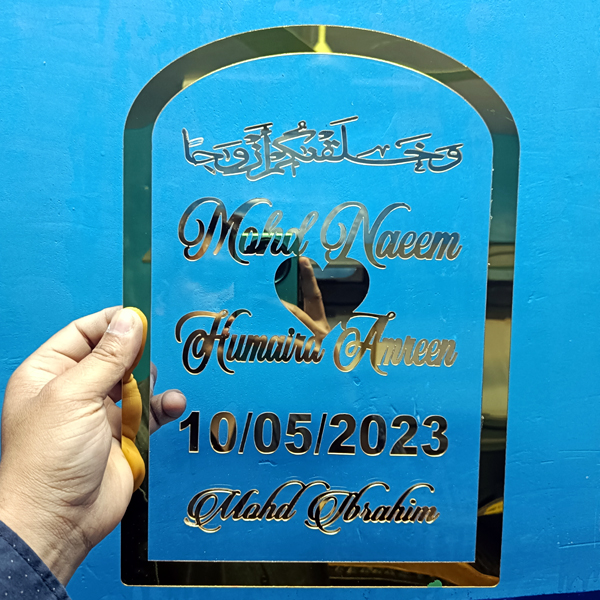 وَخَلَقْنَٰكُمْ أَزْوَٰجًا
Mohd Naeem
Humaira Amreen
10/05/2023
Mohd Ibrahim